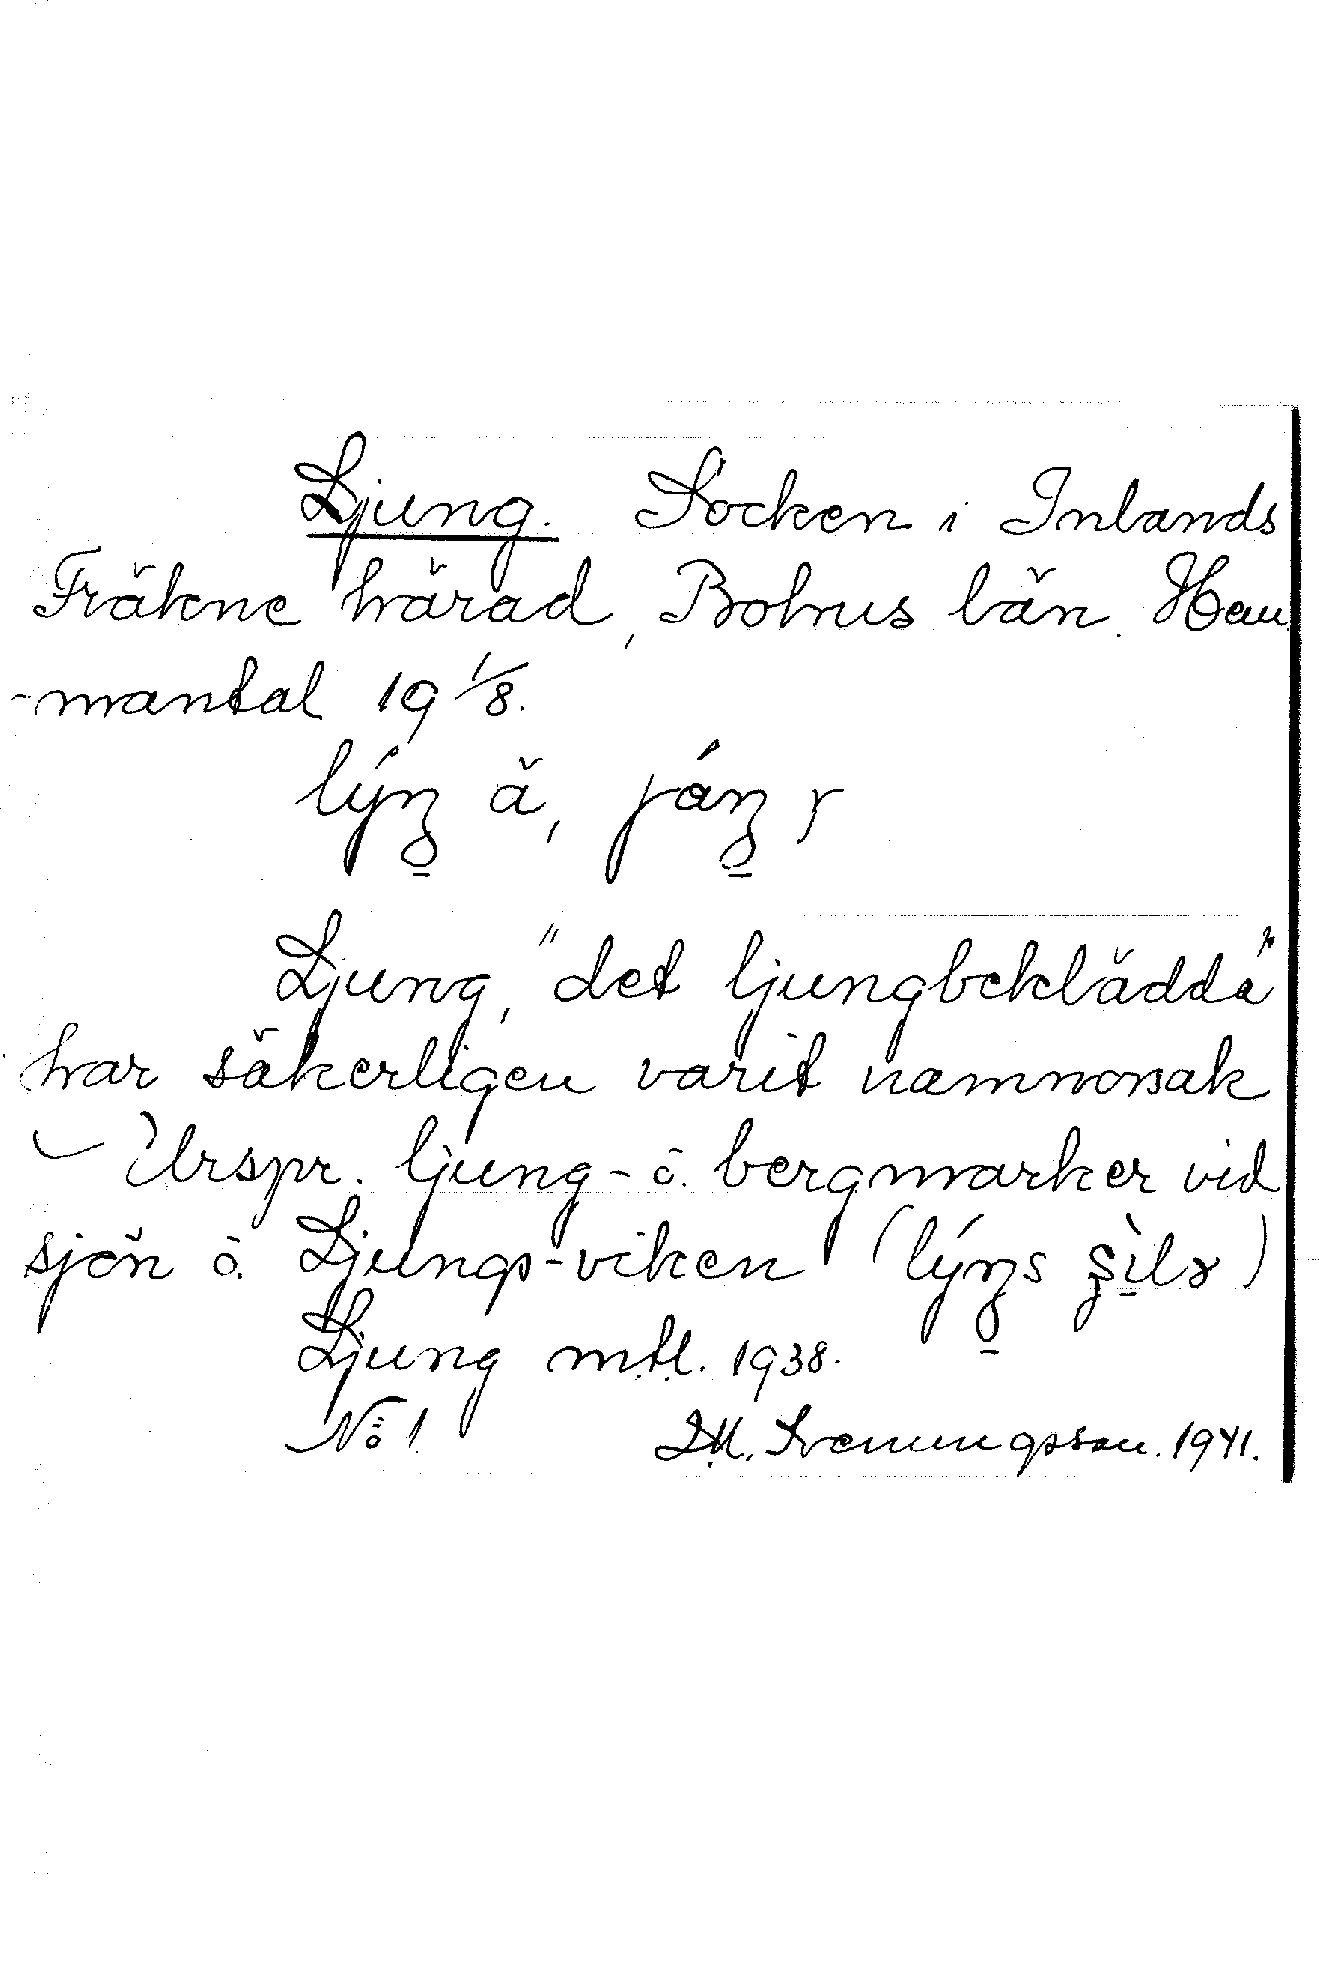 Ljung. Socken i Inlands
Fräkne härad, Bohus län. Hem
-mantal 19 1/8.
Ljung, "det ljungbeklädda"
har säkerligen varit namnorsak
Urspr. ljung- o. bergmarker vid
sjön o. Ljungs-viken
Ljung mtl. 1938.
No 1. Sveningsson. 1941.